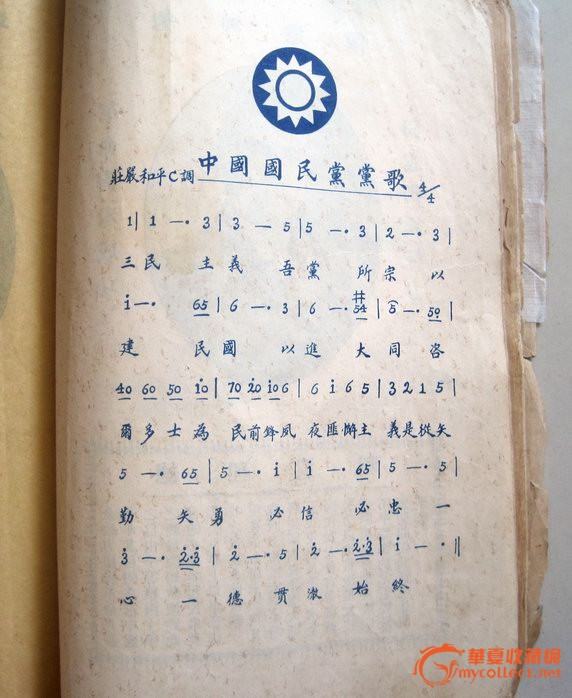 中國國民黨黨歌
莊嚴和平C調 4/4
1| 1 —• 3 | 3 — 5 | 5 —• 3 | 2 —• 3 |
三民 主義 吾黨 所宗 以
i —• 65 | 6 —• 3 | 6 —• 54 | 5 —• 50 |
建 民國 以進大同 咨
40 60 50 i0 | 70 20 i06 | 6 i 6 5 | 3 2 1 5 |
爾多士為 民前鋒夙 夜匪懈主 義是從矢
5 —• 65 | 5 —• i | i —• 65 | 5 —• 5 |
勤 矢勇 必信 必忠 一
3 —• 2•3 | 2 —• 5 | 2 —• 2•3 | i — • ||
心 一德 貫澈 始終
華夏收藏網
mycollect.net